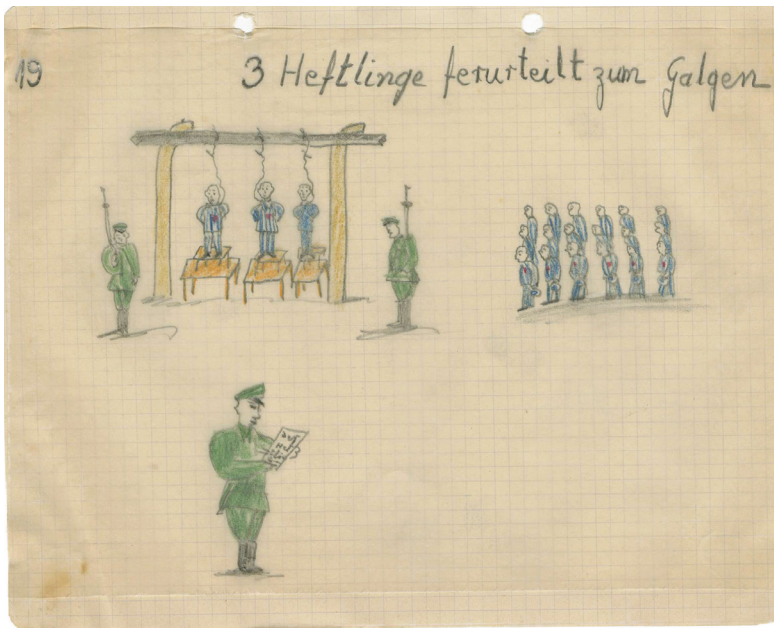 19
3 Heftlinge ferurteilt zum Galgen